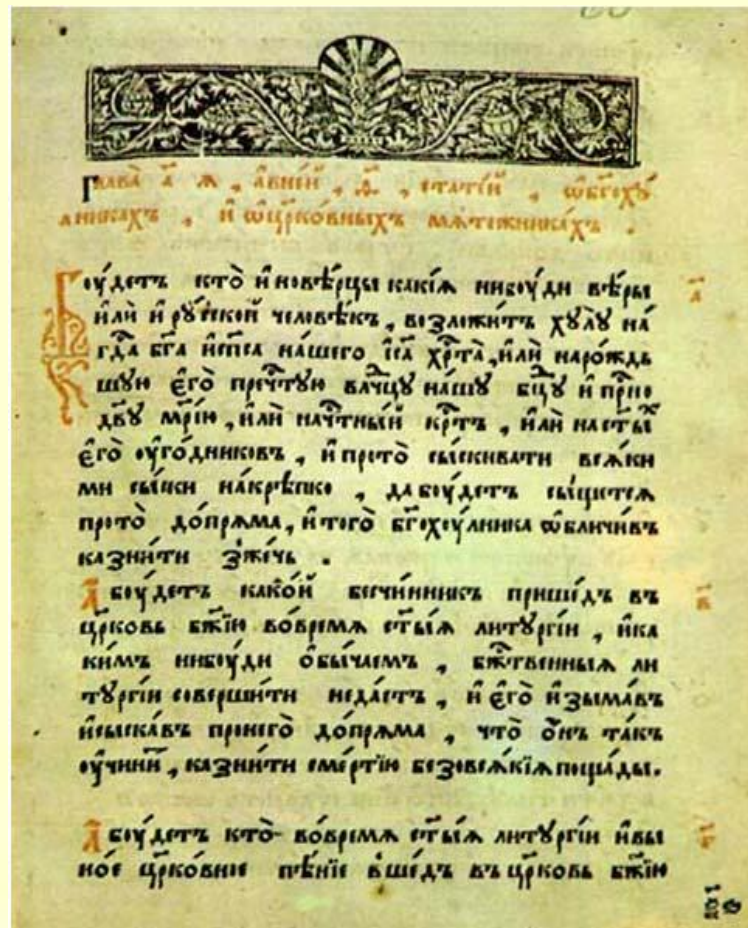 Глава̀ а҃ я , а҆ в не́й , ѳ҃ , стате́й , ѡ҆ бг҃охꙋ́
лникахъ , и҆ ѡ҆ цр҃ко́вныхъ мѧте́жникахъ .
Бꙋ́детъ кто̀ и҆нове́рцы какі́ѧ нибꙋди вѣ́ры
и҆лѝ и҆ рꙋ́сской человѣ́къ , возложи́тъ хꙋлꙋ̀ на
гд҇а бг҃а и҆ сп҃са на́шего і҆с҃а хрⷭ҇та̀ , и҆лѝ наро́ждь
шꙋю є҆го̀ пречⷭ҇тꙋю влⷣчцꙋ на́шꙋ бц҃ꙋ и҆ прⷭ҇но
дв҃ꙋ мр҃і́ю , и҆лѝ на чⷭ҇тны́й крⷭ҇тъ , и҆лѝ на ст҃ы́хъ
є҆го̀ оу҆го́дниковъ , и҆ про то̀ сы́скивати всѧ́ки
ми сы́ски на́крѣпко , да бꙋ́детъ сы́щетсѧ
про то̀ до́прѧма , и҆ того̀ бг҃охꙋ́лника ѡ҆бличи́въ
казни́ти зже́чь .
А҆ бꙋ́детъ како́й бесчи́нникъ прише́дъ въ
цр҃ковь бж҃ію во́времѧ ст҃ы́ѧ литꙋргі́и , и҆ ка
ки́мъ нибꙋ́ди ѻ҆бы́чаемъ , бжⷭ҇твенныѧ ли
тꙋргі́и соверши́ти неда́стъ , и҆ є҆го̀ и҆зыма́въ
и҆ сыска́въ про него̀ до́прѧма , что̀ ѻ҆́нъ та́къ
оу҆чини́тъ , казни́ти сме́ртїю безовсѧ́кїѧ поща́ды .
А҆ бꙋ́детъ кто̀ во́времѧ ст҃ы́ѧ литꙋргі́и и҆ въ и
но́е цр҃ко́вное пѣ́нїе вше́дъ въ цр҃ковь бж҃ію
а҃
в҃
г҃